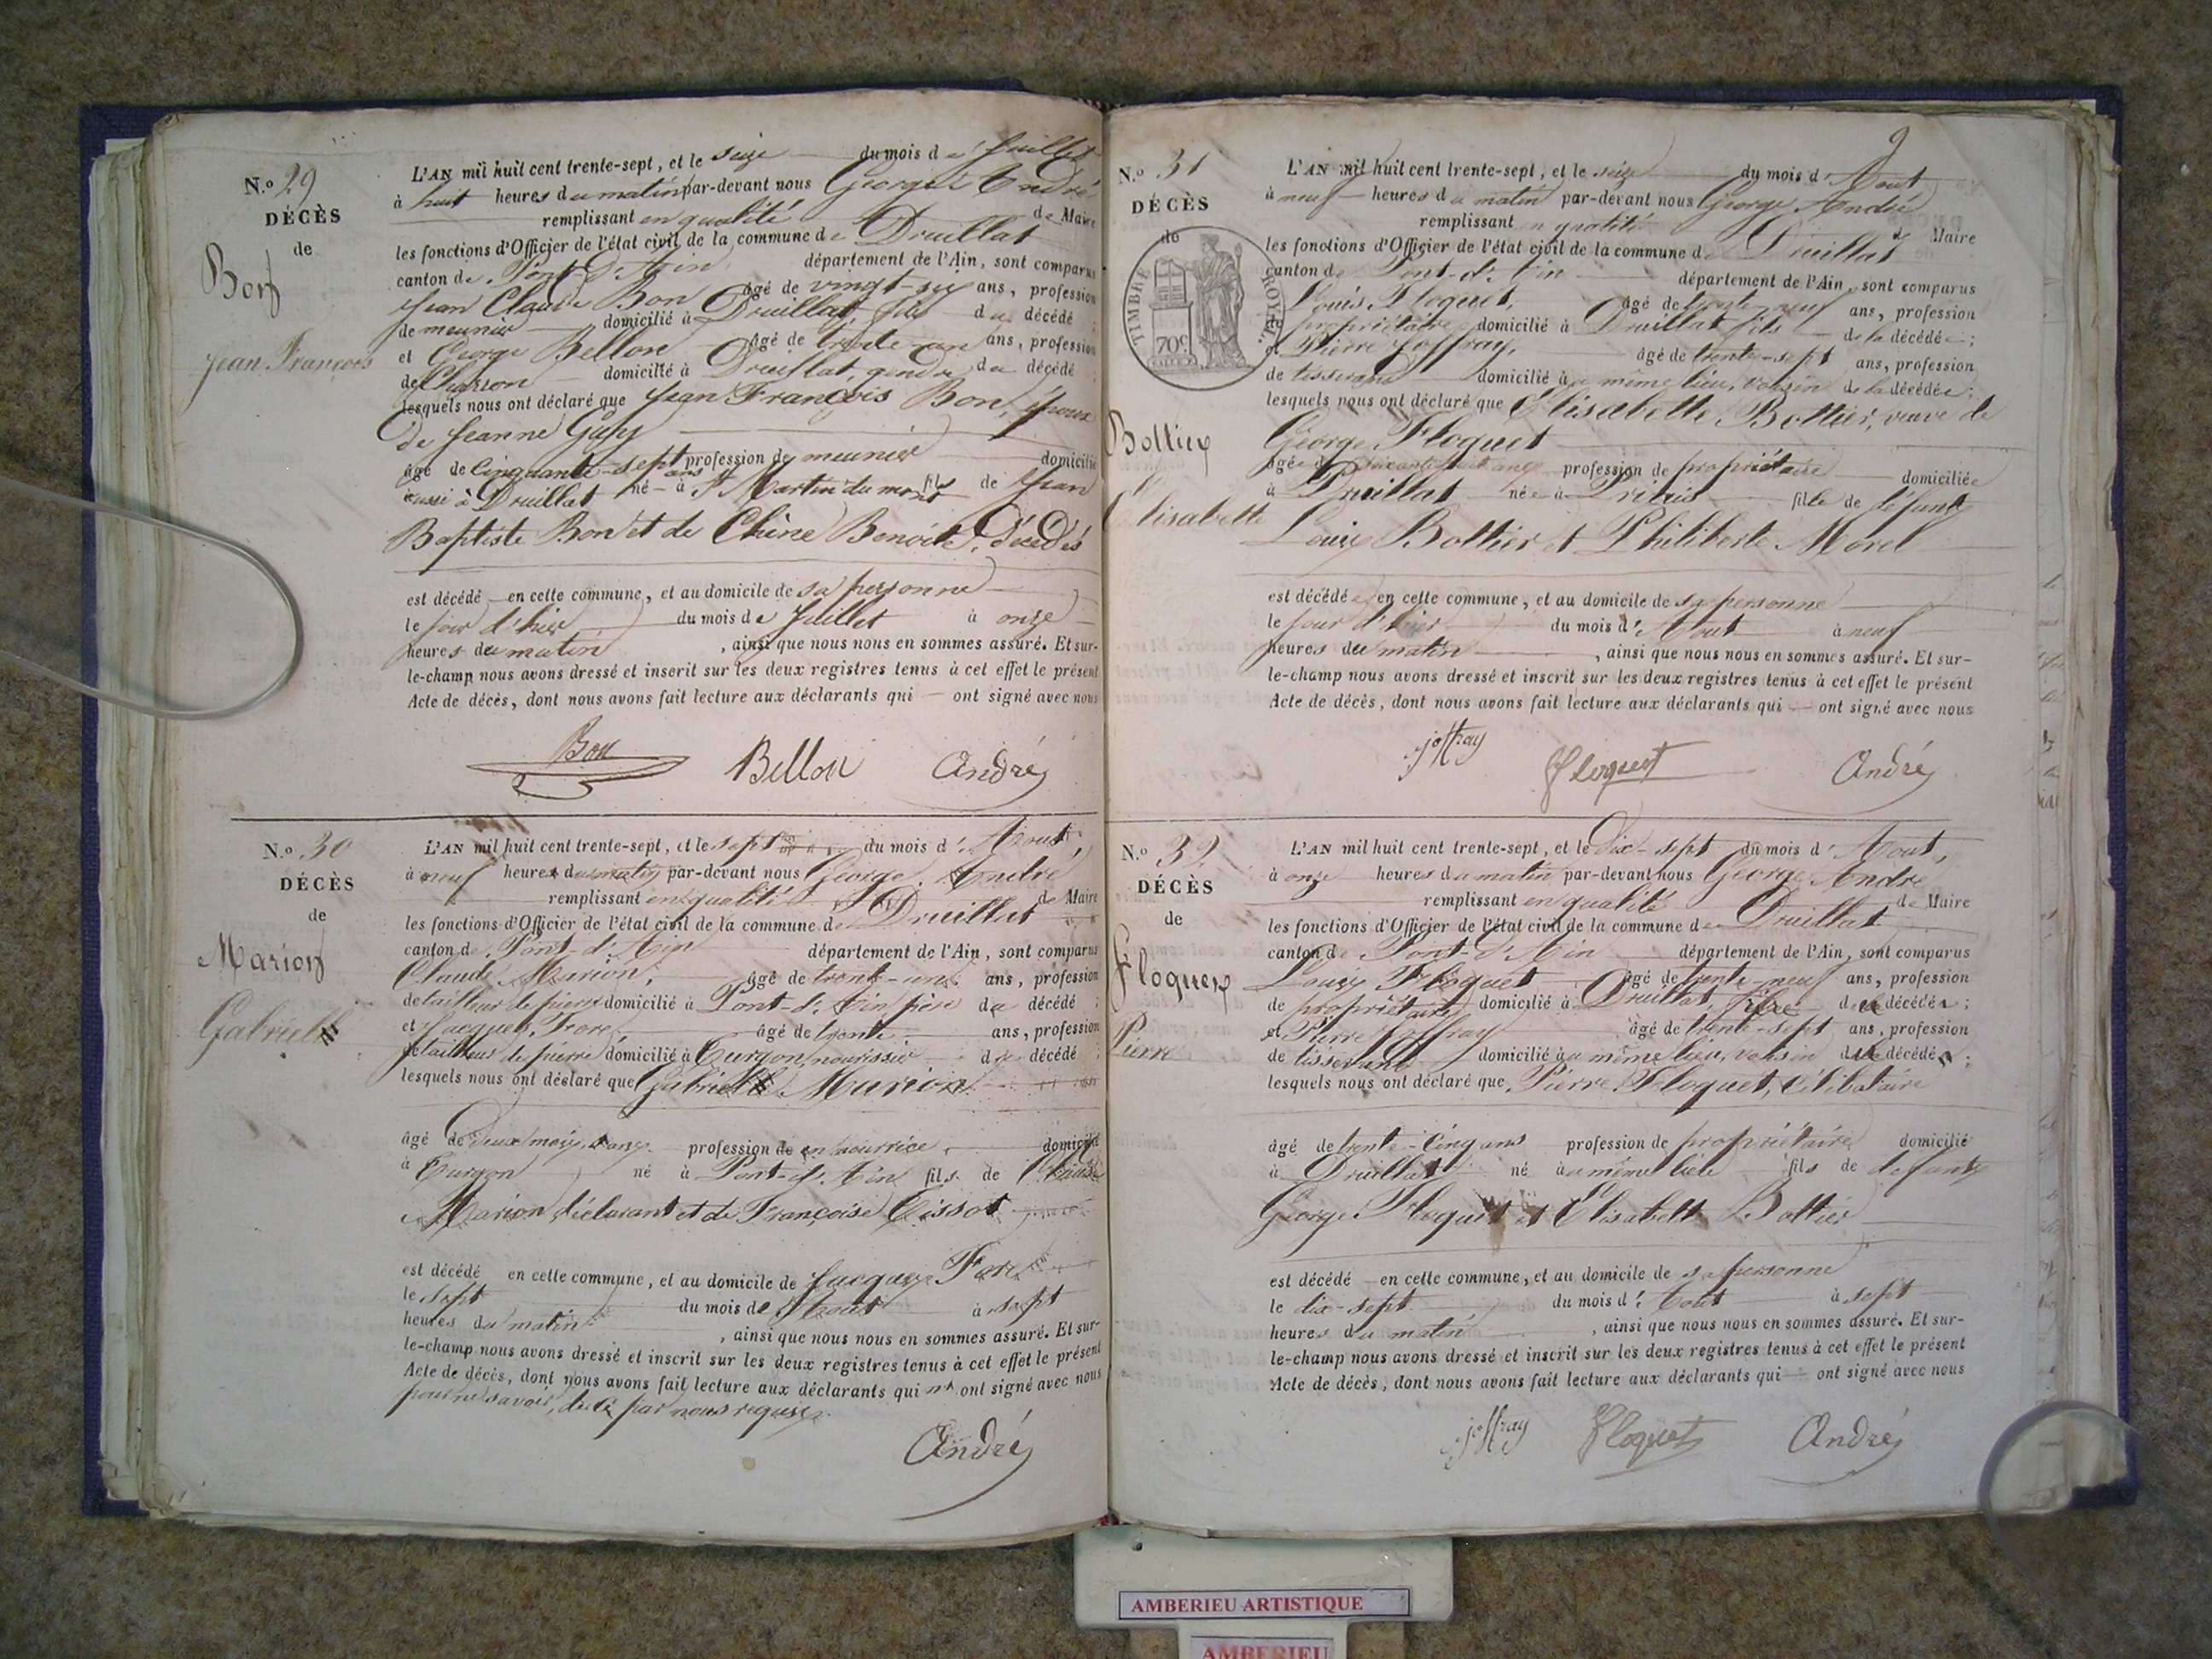 N.º 29
DÉCÈS
de
Bon
Jean François
L'AN mil huit cent trente-sept, et le seize du mois de Juillet
à huit heures du matin par-devant nous George André
remplissant en qualité de Maire
les fonctions d'Officier de l'état civil de la commune de Druillat
canton de Pont-d'Ain département de l'Ain, sont comparus
Jean Claude Bon âgé de vingt-six ans, profession
de meunier domicilié à Druillat, fils du décédé ;
et George Bellon âgé de trente-un ans, profession
de Charron domicilié à Druillat, gendre du décédé ;
lesquels nous ont déclaré que Jean François Bon, époux
de Jeanne Guy
âgé de Cinquante-sept ans profession de meunier domicilié
aussi à Druillat né à St Martin du mont fils de Jean
Baptiste Bon et de Chêne Benoite, décédés
est décédé en cette commune, et au domicile de sa personne
le jour d'hier du mois de Juillet à onze
heures du matin , ainsi que nous nous en sommes assuré. Et sur-
le-champ nous avons dressé et inscrit sur les deux registres tenus à cet effet le présent
Acte de décès, dont nous avons fait lecture aux déclarants qui ont signé avec nous
Bon Bellon André
N.º 30
DÉCÈS
de
Marion
Gabriel
L'AN mil huit cent trente-sept, et le sept du mois d'Aout,
à neuf heures du matin par-devant nous George André
remplissant en qualité de Maire
les fonctions d'Officier de l'état civil de la commune de Druillat
canton de Pont-d'Ain département de l'Ain, sont comparus
Claude Marion, âgé de trente-un ans, profession
de tailleur de pierre domicilié à Pont-d'Ain père du décédé ;
et Jacques Fore âgé de trente ans, profession
de tailleur de pierre domicilié à Turgon, nourissier du décédé ;
lesquels nous ont déclaré que Gabriel Marion
âgé de deux mois profession de en nourrice, domicilié
à Turgon né à Pont-d'Ain fils de Claude
Marion, déclarant et de Françoise Tissot
est décédé en cette commune, et au domicile de Jacques Fore
le sept du mois de Aout à sept
heures du matin , ainsi que nous nous en sommes assuré. Et sur-
le-champ nous avons dressé et inscrit sur les deux registres tenus à cet effet le présent
Acte de décès, dont nous avons fait lecture aux déclarants qui nt ont signé avec nous
pour ne savoir, de ce par nous requis.
André
9
N.º 31
DÉCÈS
de
TIMBRE ROYAL.
70c
Bottier
Elisabette
L'AN mil huit cent trente-sept, et le seize du mois d'Aout
à neuf heures du matin par-devant nous George André
remplissant en qualité de Maire
les fonctions d'Officier de l'état civil de la commune de Druillat
canton de Pont-d'Ain département de l'Ain, sont comparus
Louis Floquet, âgé de trente-neuf ans, profession
propriétaire domicilié à Druillat fils de la décédée ;
et Pierre Joffray, âgé de trente-sept ans, profession
de tisserand domicilié au même lieu, voisin de la décédée ;
lesquels nous ont déclaré que Elisabette Bottier, veuve de
George Floquet
âgée de soixante huit ans profession de propriétaire domiciliée
à Druillat née à fille de défunt
Louis Bottier et Philiberte Morel
est décédée en cette commune, et au domicile de sa personne
le jour d'hier du mois d'Aout à neuf
heures du matin , ainsi que nous nous en sommes assuré. Et sur-
le-champ nous avons dressé et inscrit sur les deux registres tenus à cet effet le présent
Acte de décès, dont nous avons fait lecture aux déclarants qui ont signé avec nous
joffray Floquet André
N.º 32
DÉCÈS
de
Floquet
Pierre
L'AN mil huit cent trente-sept, et le Dix-sept du mois d'Aout,
à onze heures du matin par-devant nous George André
remplissant en qualité de Maire
les fonctions d'Officier de l'état civil de la commune de Druillat
canton de Pont-d'Ain département de l'Ain, sont comparus
Louis Floquet âgé de trente-neuf ans, profession
de propriétaire domicilié à Druillat, frère du décédé ;
et Pierre Joffray âgé de trente-sept ans, profession
de tisserand domicilié au même lieu, voisin du décédé ;
lesquels nous ont déclaré que Pierre Floquet, célibataire
âgé de trente-cinq ans profession de propriétaire domicilié
à Druillat né au même lieu fils de défunts
George Floquet et Elisabette Bottier
est décédé en cette commune, et au domicile de sa personne
le dix-sept du mois d'Aout à sept
heures du matin , ainsi que nous nous en sommes assuré. Et sur-
le-champ nous avons dressé et inscrit sur les deux registres tenus à cet effet le présent
Acte de décès, dont nous avons fait lecture aux déclarants qui ont signé avec nous
joffray Floquet André
AMBERIEU ARTISTIQUE
AMBERIEU